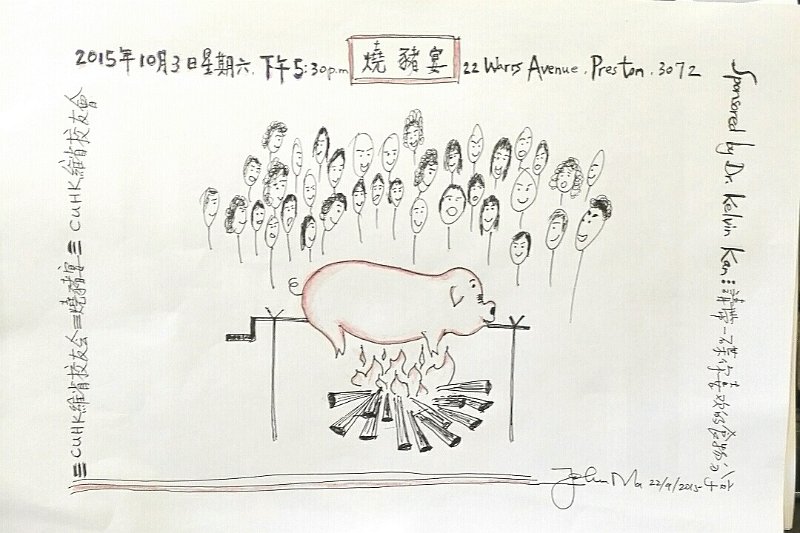 2015年10月3日星期六. 下午5:30p.m
燒豬宴
22 Warrs Avenue. Preston. 3072
三CUHK維省校友会三燒豬宴三 CUHK維省校友會
Sponsored by Dr. Kelvin Kan
請帶一碟你喜歡的食物
John Ma 22/9/2015